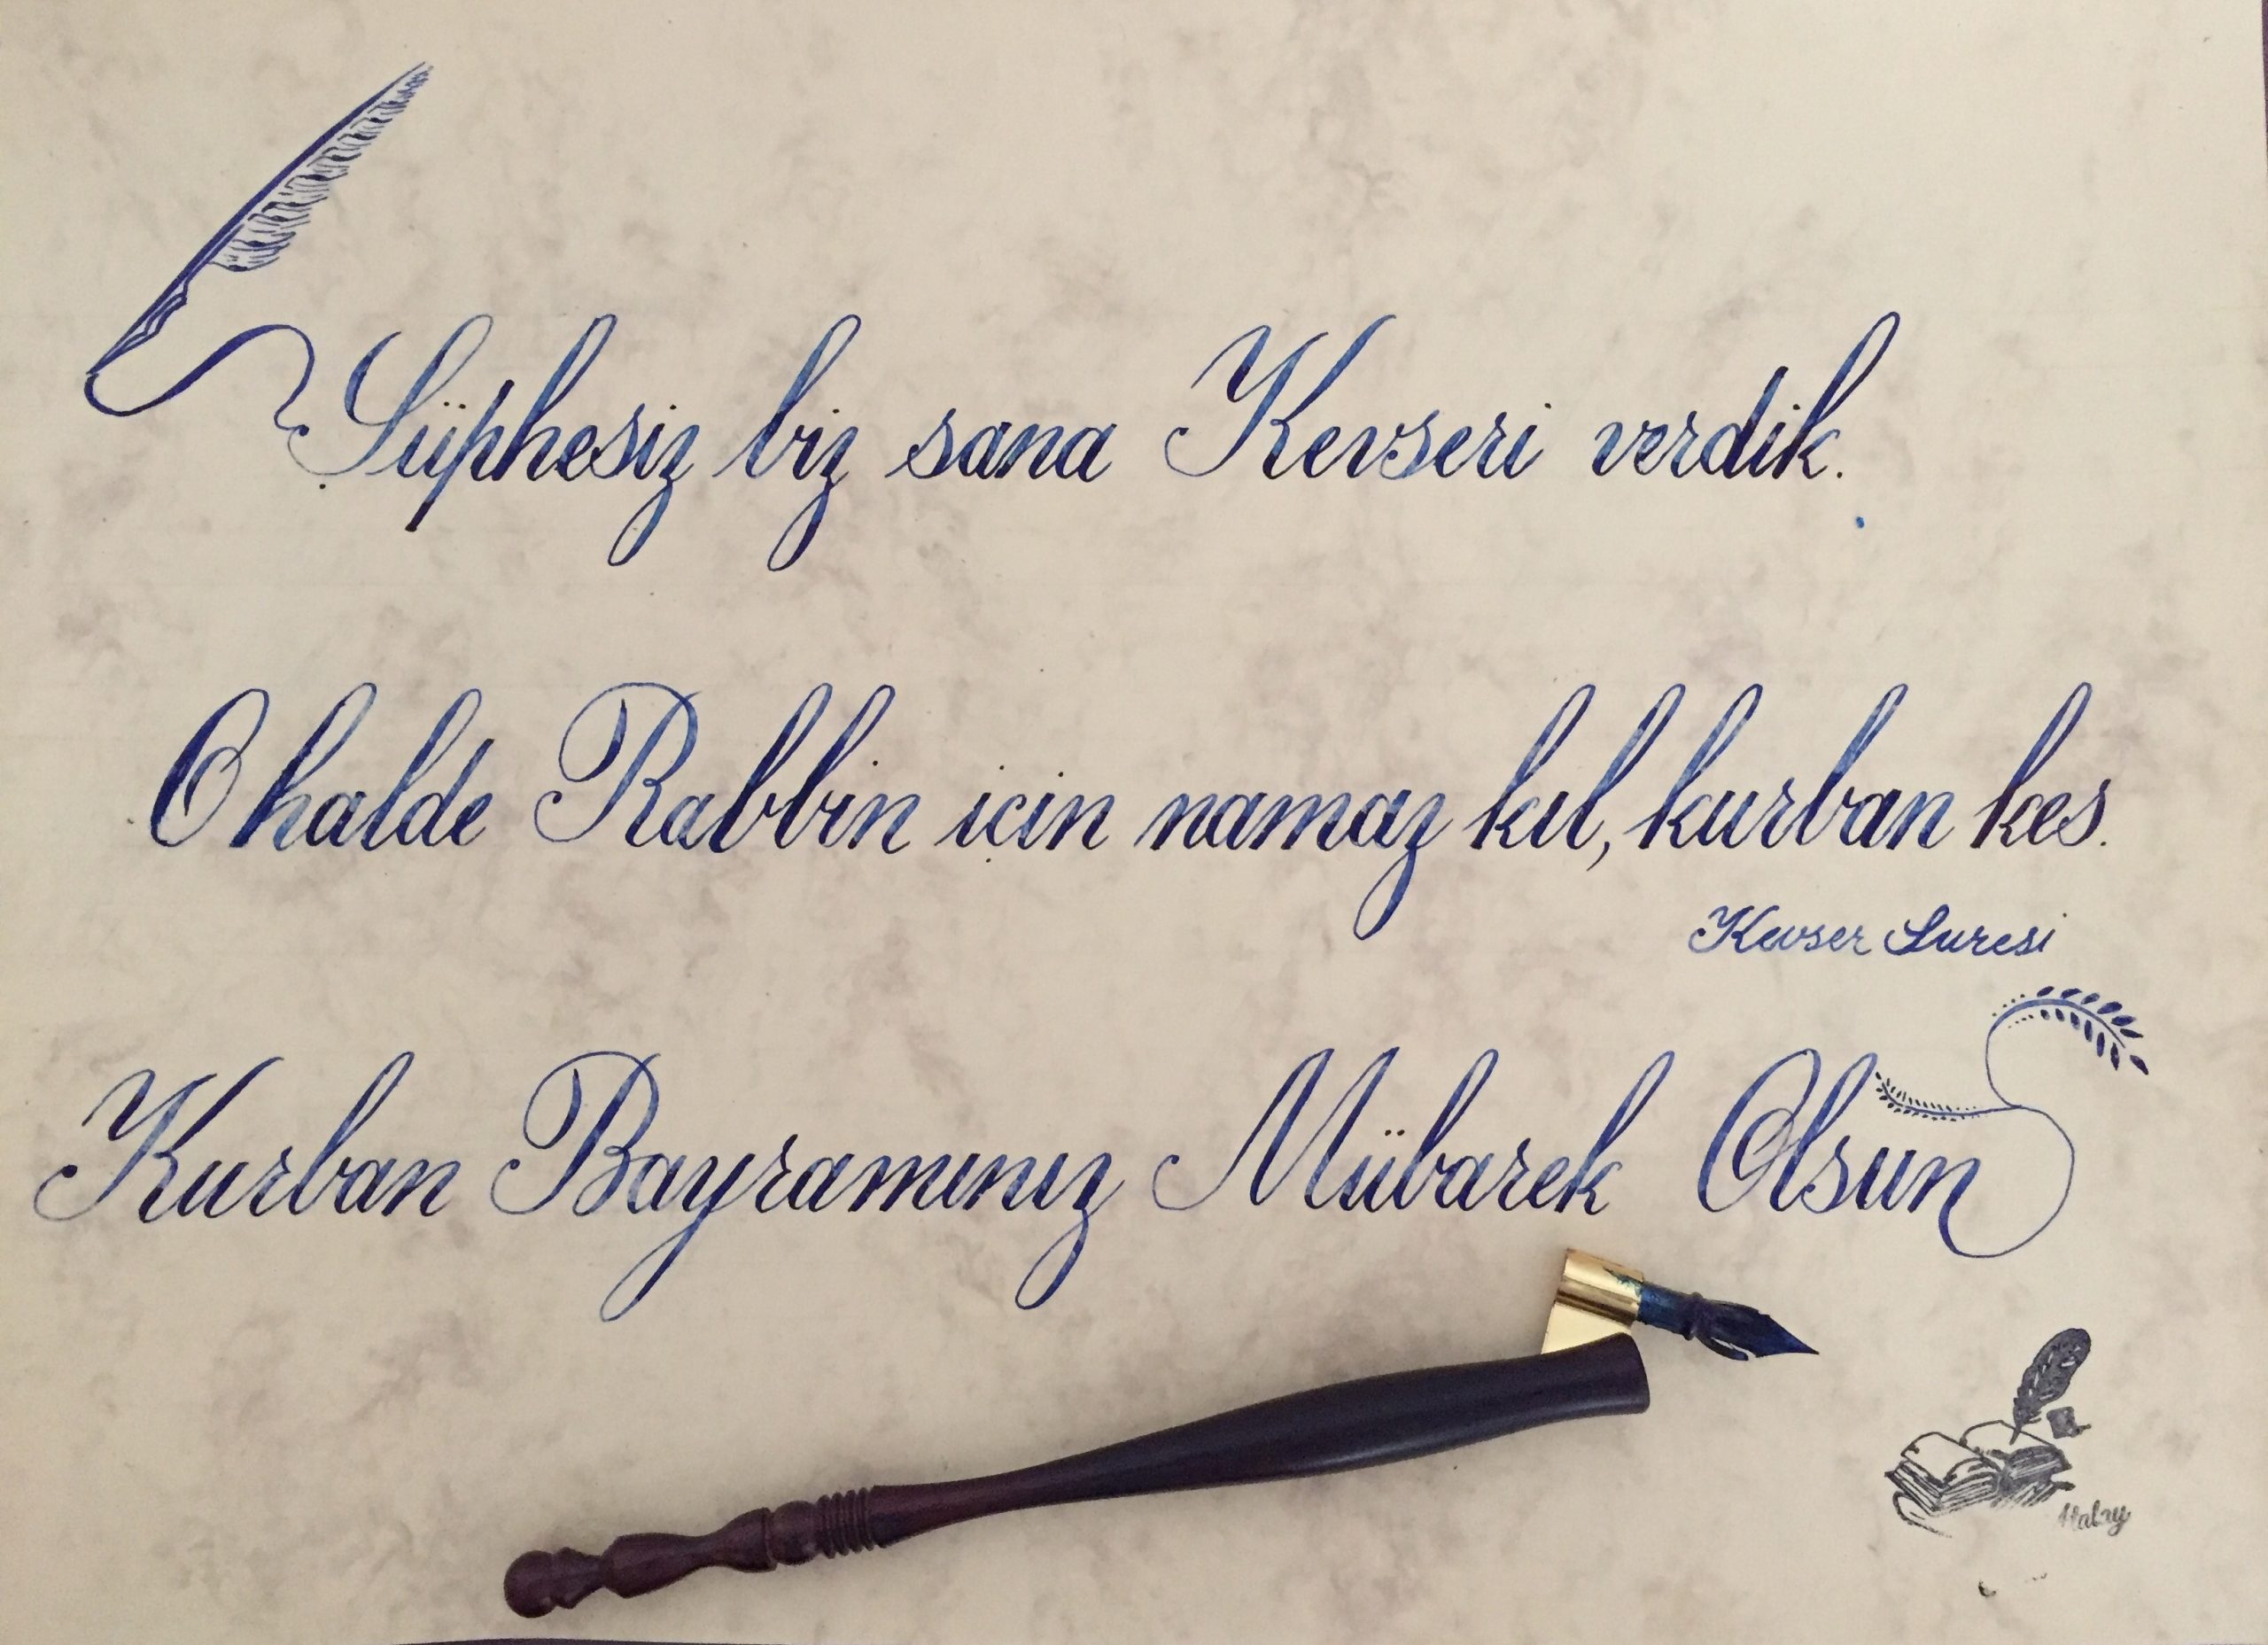 Şüphesiz biz sana Kevseri verdik.
O halde Rabbin için namaz kıl, kurban kes.
Kevser Suresi
Kurban Bayramınız Mübarek Olsun